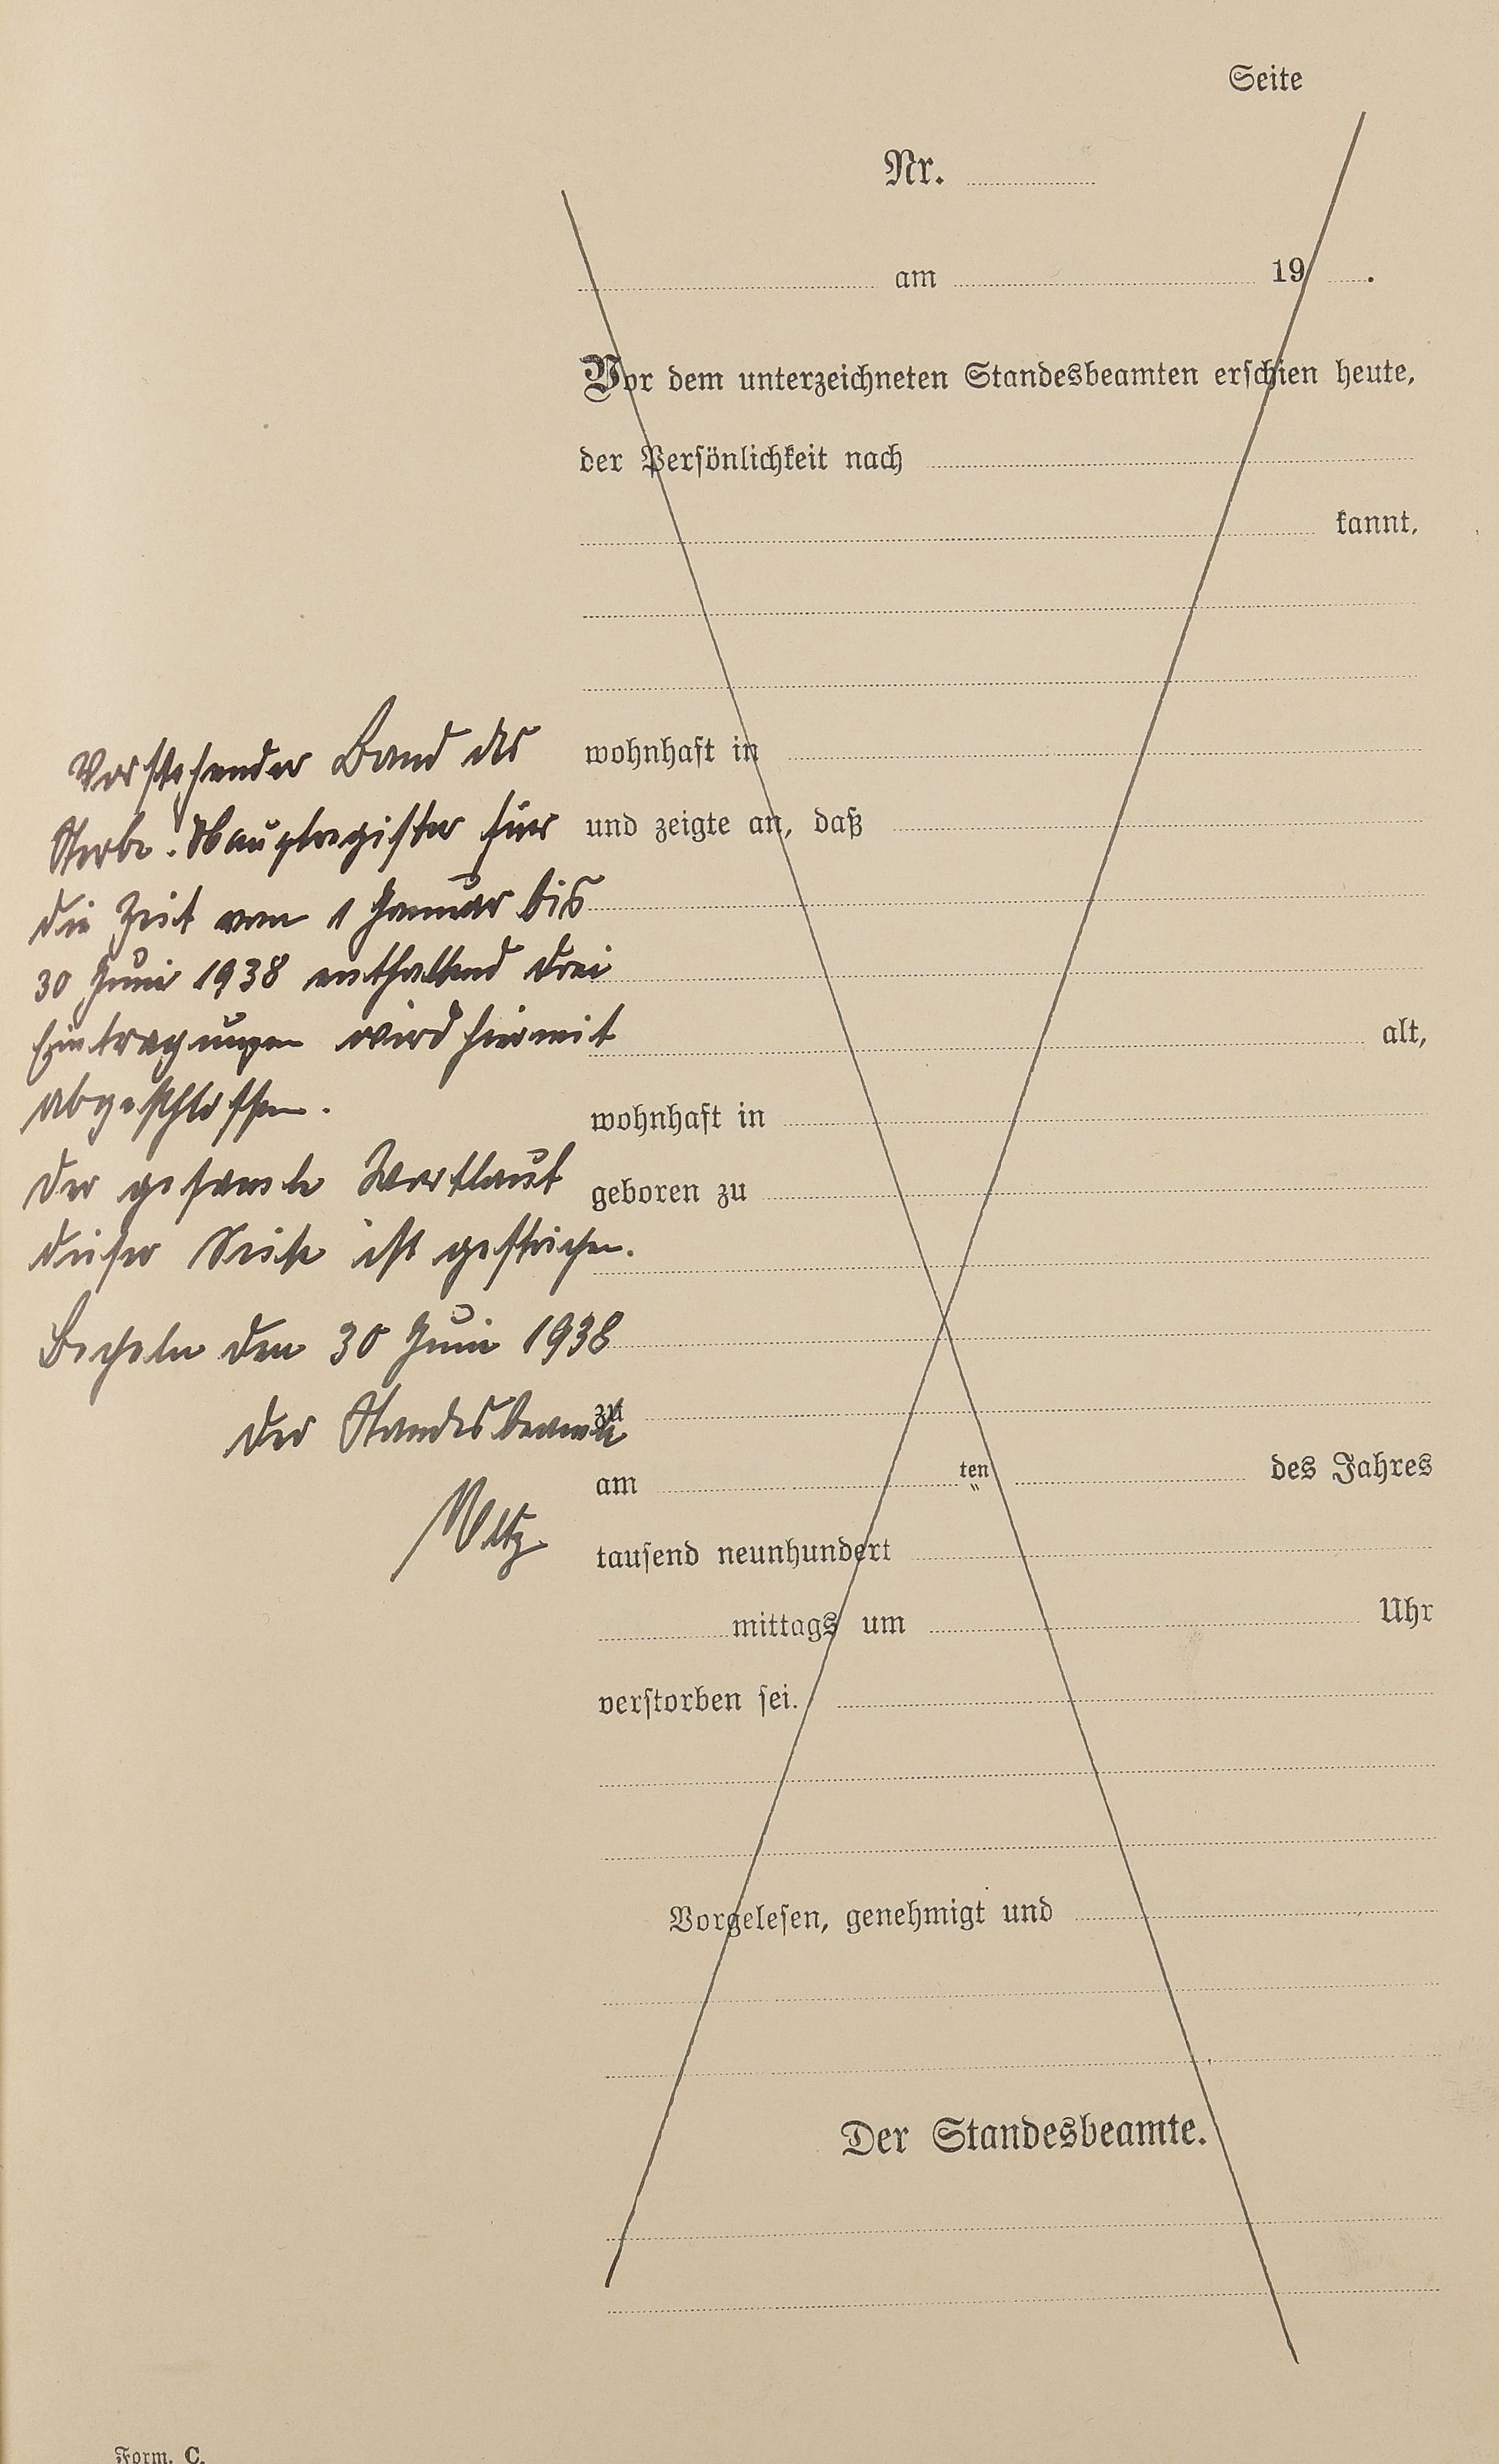 Seite
Nr.
am 19 .
Vor dem unterzeichneten Standesbeamten erschien heute,
der Persönlichkeit nach
kannt,
wohnhaft in
und zeigte an, daß
alt,
wohnhaft in
geboren zu
zu
am ten des Jahres
tausend neunhundert
mittags um Uhr
verstorben sei.
Vorgelesen, genehmigt und
Der Standesbeamte.
Vorstehender Band des
Sterbe-Hauptregister für
die Zeit vom 1 Januar bis
30 Juni 1938 enthaltend drei
Eintragungen wird hiermit
abgeschlossen.
Der gesamte Wortlaut
dieser Seite ist gestrichen.
Becheln den 30 Juni 1938
Der Standesbeamte
Form. C.